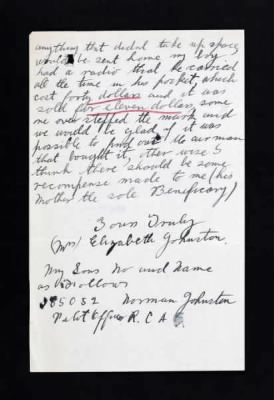 anything that didnt take up space
would be sent home my boy
had a radio that he carried
all the time in his pocket which
cost forty dollars and it was
sold for eleven dollars, some
one over stepped the mark and
we would be glad if it was
possible to find out the airman
that bought it, other wise I
think there should be some
recompense made to me (his
Mother the sole Beneficary)
Yours Truly
(Mrs) Elizabeth Johnston.
My Sons No and Name
as Follows
J 85032 Norman Johnston
Pilot Officer R.C.A.F.